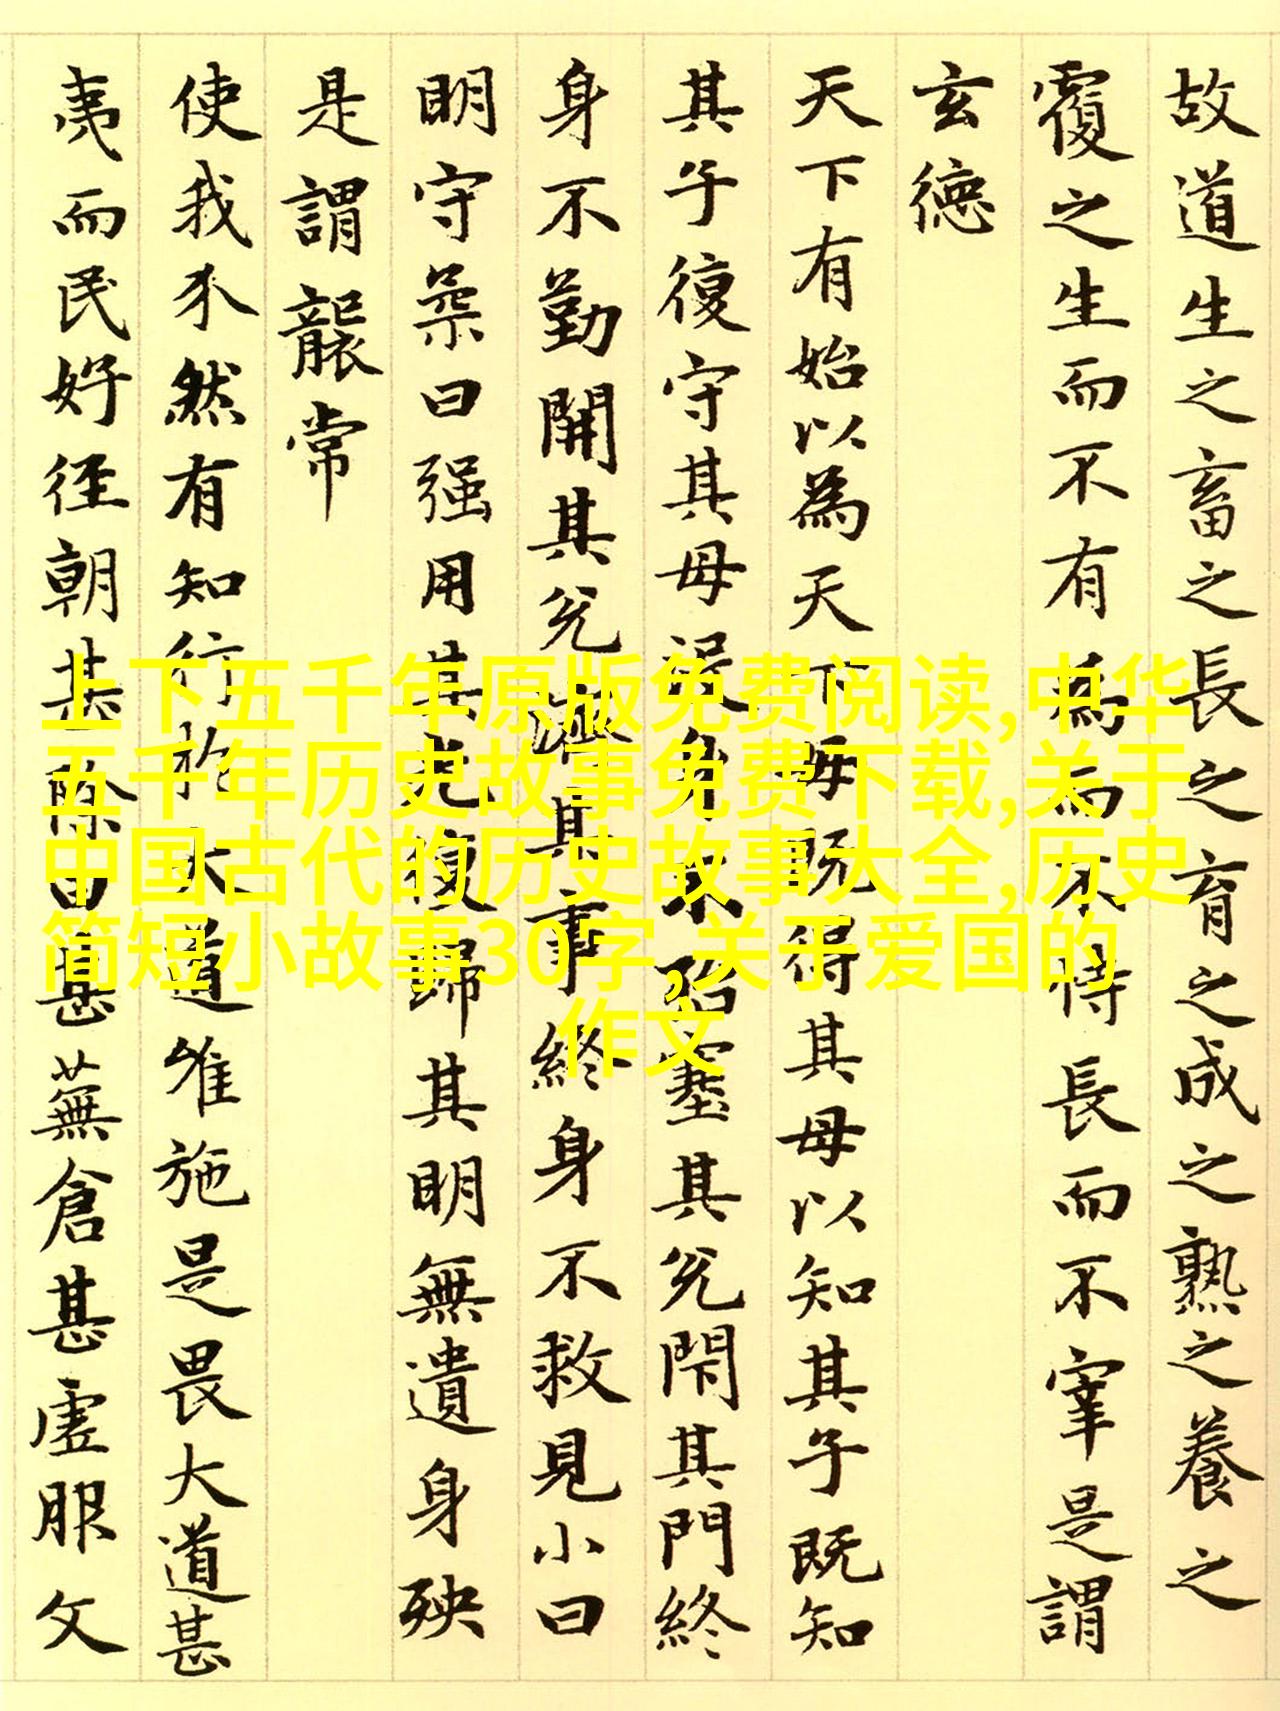 故道生之畜之長之育之成之熟之養之
覆之生而不有為而不恃長而不宰是謂
玄德
天下有始以為天下母既得其母以知其子既知
其子復守其母沒身不殆塞其兊閇其門終
身不勤開其兊濟其事終身不救見小曰
明守柔曰强用其光復歸其明無遺身殃
是謂襲常
使我介然有知行於大道唯施是畏大道甚
夷而民好徑朝甚除田甚蕪倉甚虛服文
上下五千年原版免费阅读,中华
五千年历史故事免费下载,关于
中国古代的历史故事大全,历史
简短小故事30字,关于爱国的
作文